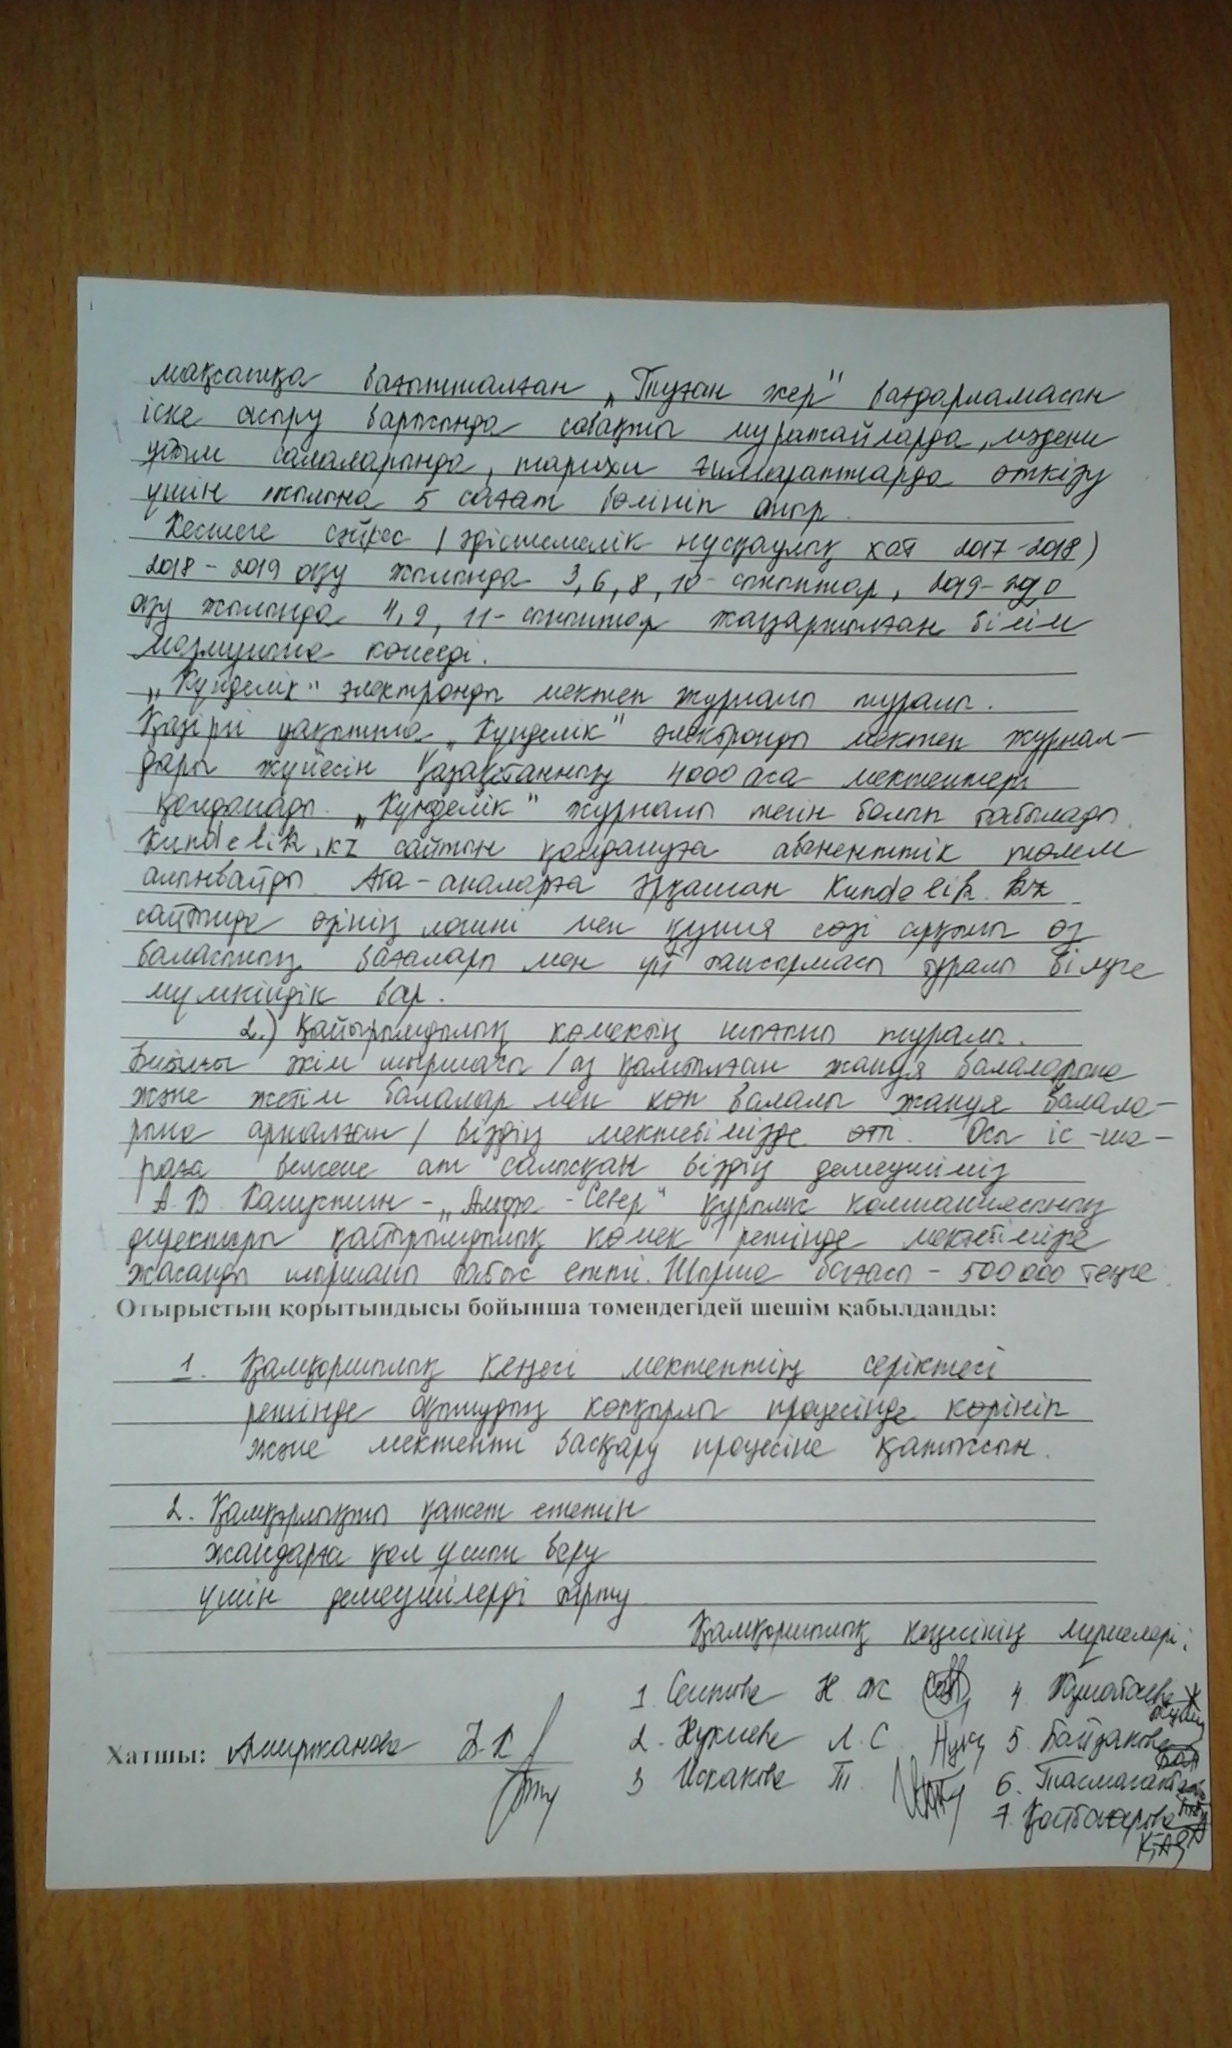 мақсатқа бағытталған „Туған жер" бағдарламасын
іске асыру барысында сабақты мұражайларда, мәдени
ұйым салаларында, тарихи ғимараттарда өткізу
үшін жылына 5 сағат бөлініп отыр.
Кестеге сәйкес /әдістемелік нұсқаулық хат 2017-2018)
2018-2019 оқу жылында 3, 6, 8, 10-сыныптар, 2019-2020
оқу жылында 4, 9, 11-сыныптар жаңартылған білім
мазмұнына көшеді.
„Күнделік" электронды мектеп журналы туралы.
Қазіргі уақытта „Күнделік" электронды мектеп журнал-
дары жүйесін Қазақстанның 4000 аса мектептері
қолданады. „Күнделік" журналы тегін болып табылады.
Kundelik.kz сайтын қолдануға абоненттік төлем
алынбайды. Ата-аналарға әрқашан Kundelik.kz
сайтында өзінің логині мен құпия сөзі арқылы өз
баласының бағалары мен үй тапсырмасы туралы білуге
мүмкіндік бар.
2.) Қайырымдылық көмектің шығыны туралы.
Биылғы әкім шыршасы /аз қамтылған жануя балаларына
және жетім балалар мен көп балалы жануя балала-
рына арналған/ біздің мектебімізде өтті. Осы іс-ша-
раға белсене ат салысқан біздің демеушіміз
А.В. Капустин - „Альфа-Север" құрылыс компаниясының
директоры қайырымдылық көмек ретінде мектебімізге
жасанды шыршаны табыс етті. Шырша бағасы - 500 000 теңге
Отырыстың қорытындысы бойынша төмендегідей шешім қабылданды:
1. Қамқоршылық кеңесі мектептің серіктесі
ретінде оқытудың көпқырлы процесінде көрініп
және мектепті басқару процесіне қатыссын.
2. Қамқорлықты қажет ететін
жандарға қол ұшын беру
үшін демеушілерді тарту
Қамқоршылық кеңесінің мүшелері:
1 Сеитова Н Ж 4
2. Нукиева Л. С. 5. Байзакова
3 Искакова Т. 6.
7.
Хатшы: Амиржанова Б. К